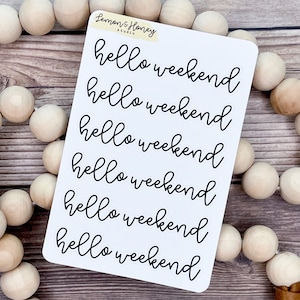 Lemon & Honey
STUDIO
hello weekend
hello weekend
hello weekend
hello weekend
hello weekend
hello weekend